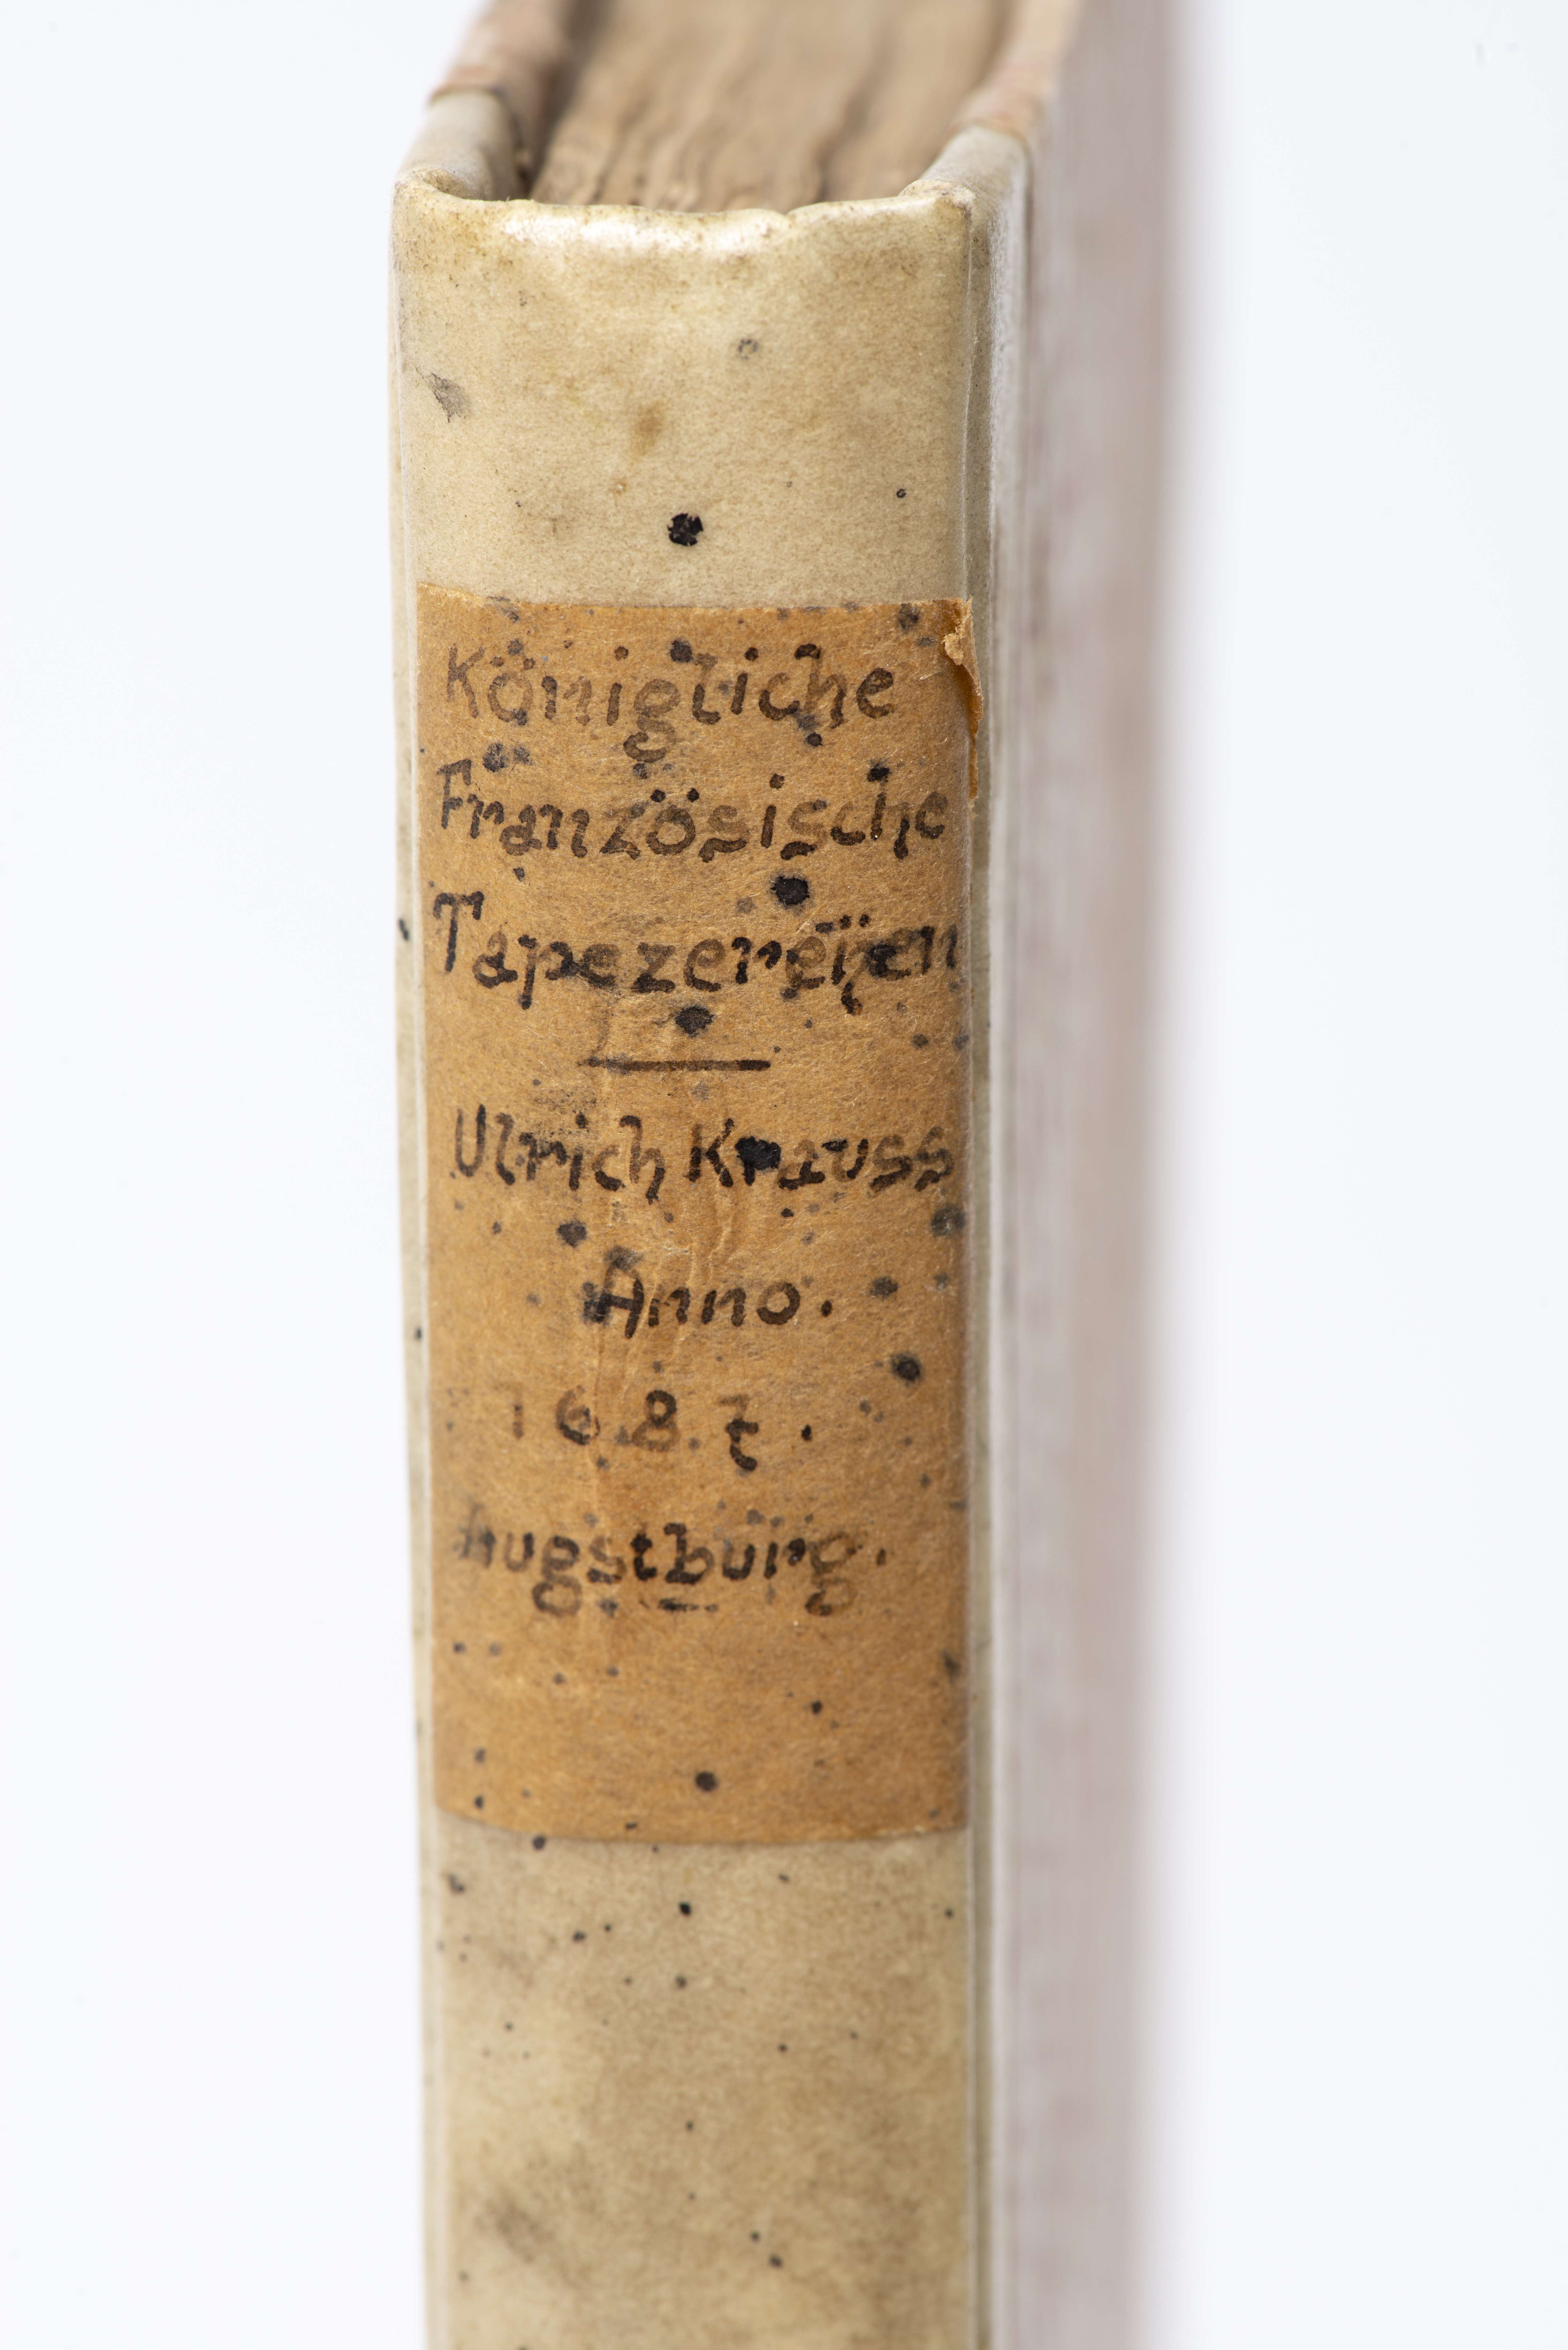 Königliche
Französische
Tapezereÿen
Ulrich Krauss
Anno.
1687.
Augstburg.